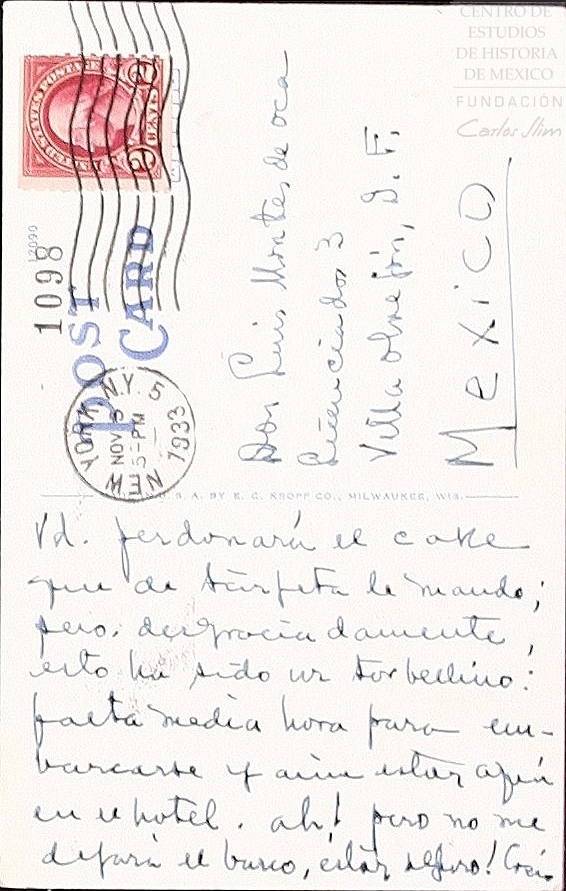 CENTRO DE
ESTUDIOS
DE HISTORIA
DE MEXICO
FUNDACIÓN
Carlos Slim
UNITED STATES POSTAGE
2 CENTS 2
12090
1098
POST
CARD
NEW YORK N.Y. 5
NOV 3
5-PM
1933
Don Luis Montes de oca
Licenciado 3
Villa Obregón, D. F.
Mexico
S. A. BY E. C. KROPP CO., MILWAUKEE, WIS.
Vd. perdonará el
que de tarjeta le mando;
pero, desgraciadamente,
esto ha sido un torbellino:
falta media hora para em-
barcarse y aún estar aquí
en el hotel. ah! pero no me
dejará el barco, estar seguro!